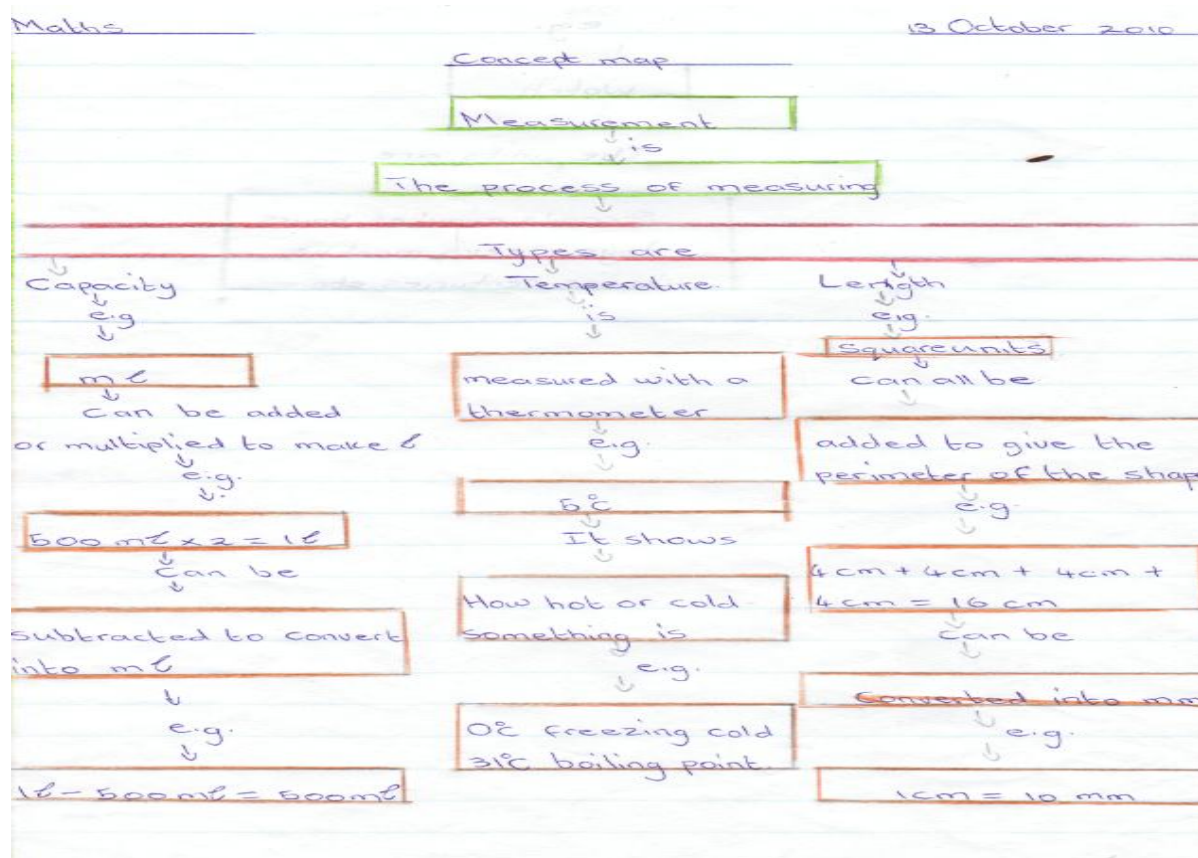 Maths 13 October 2010
Concept map
Measurement
is
The process of measuring
Types are
Capacity
e.g
ml
can be added
or multiplied to make l
e.g.
500 ml x 2 = 1l
can be
subtracted to convert
into ml
e.g.
1l - 500ml = 500ml
Temperature
is
measured with a
thermometer
e.g.
5°c
It shows
How hot or cold
something is
e.g.
0°c freezing cold
31°c boiling point.
Length
e.g.
squareunits
can all be
added to give the
perimeter of the shape
e.g
4cm + 4cm + 4cm +
4cm = 16 cm
can be
Converted into mm
e.g.
1cm = 10 mm